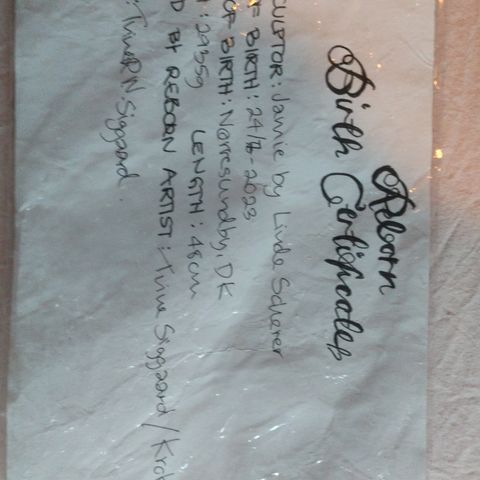 Reborn
Birth Certificates
CULPTOR: Jamie by Linde Scherer
F BIRTH: 24/8-2023
OF BIRTH: Nørresundby, DK
: 2935g LENGTH: 48cm
D BY REBORN ARTIST: Trine Siggaard / Krok
: TrineRN Siggaard.